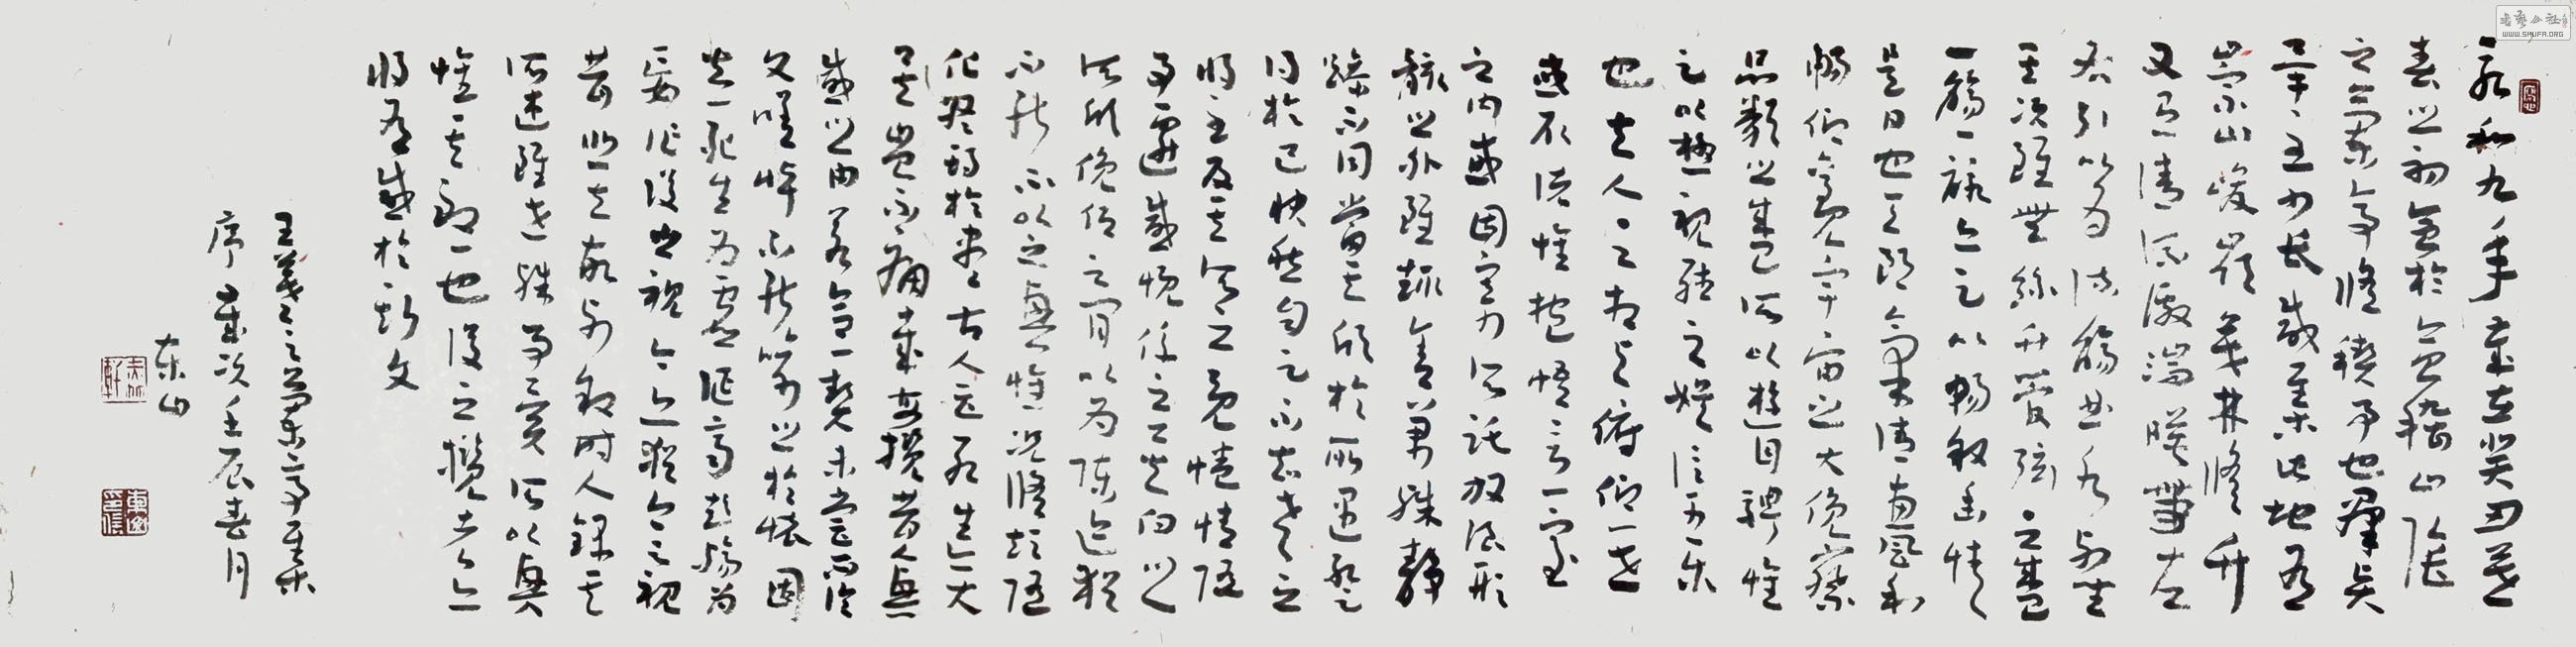 永和九年歲在癸丑暮
春之初會於會稽山陰
之蘭亭脩稧事也羣賢
畢至少長咸集此地有
崇山峻嶺茂林脩竹
又有清流激湍暎帶左
右引以為流觴曲水列坐
其次雖無絲竹管弦之盛
一觴一詠亦足以暢敘幽情
是日也天朗氣清惠風和
暢仰觀宇宙之大俛察
品類之盛所以遊目騁懷
足以極視聽之娛信可樂
也夫人之相與俯仰一世
或取諸懷抱悟言一室
之內或因寄所託放浪形
骸之外雖趣舍萬殊靜
躁不同當其欣於所遇暫
得於己快然自足不知老之
將至及其所之既惓情隨
事遷感慨係之矣向之
所欣俛仰之間以為陳迹猶
不能不以之興懷況脩短隨
化終期於盡古人云死生亦大
矣豈不痛哉每攬昔人興
感之由若合一契未嘗不臨
文嗟悼不能喻之於懷固
知一死生為虛誕齊彭殤為
妄作後之視今亦猶今之視
昔悲夫故列敘時人錄其
所述雖世殊事異所以興
懷其致一也後之攬者亦
將有感於斯文
王羲之蘭亭集
序歲次壬辰春月
東山
WWW.SHUFA.ORG